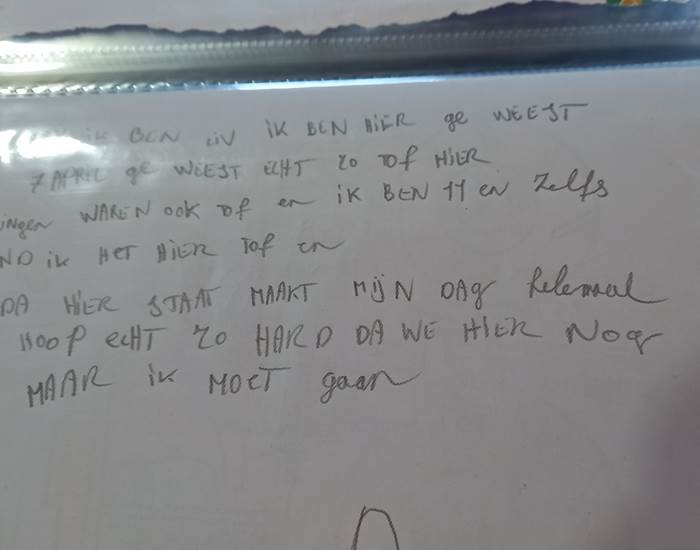 ik BEN LIV iK BEN HiER ge WEEST
7 APRIL ge WEEST ECHT ZO TOf HIER
ingen WAREN OOK TOf en iK BEN 11 en Zelfs
ND ik HET HIER Tof en
DA HIER STAAT MAAKT MIJN DAg helemaal
HOOP ecHT ZO HARD DA WE HIER NOg
MAAR ik MOET gaan